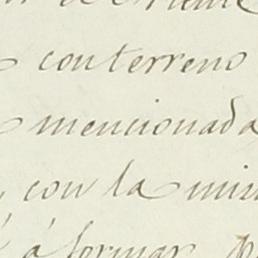 con terreno
mencionada
con la mis
á formar